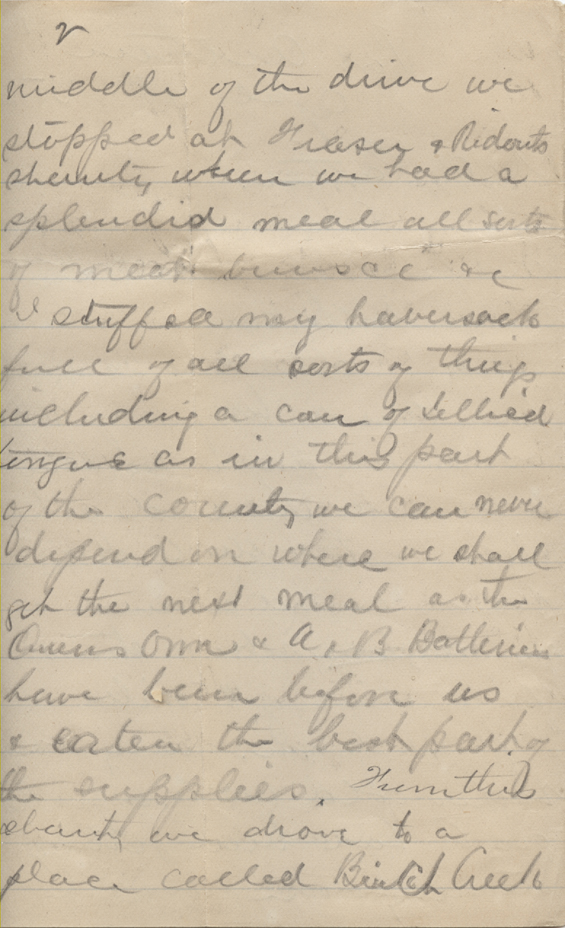 2
middle of the drive we
stopped at Fraser & Ridouts
shanty, when we had a
splendid meal all sorts
of meat &c
I stuffed my haversack
full of all sorts of things
including a can of Jellied
tongue as in this part
of the country we can never
depend on where we shall
get the next meal as the
Queens Own & A, B Batteries
have been before us
& eaten the best part of
the supplies. From this
shanty we drove to a
place called Birch Creek